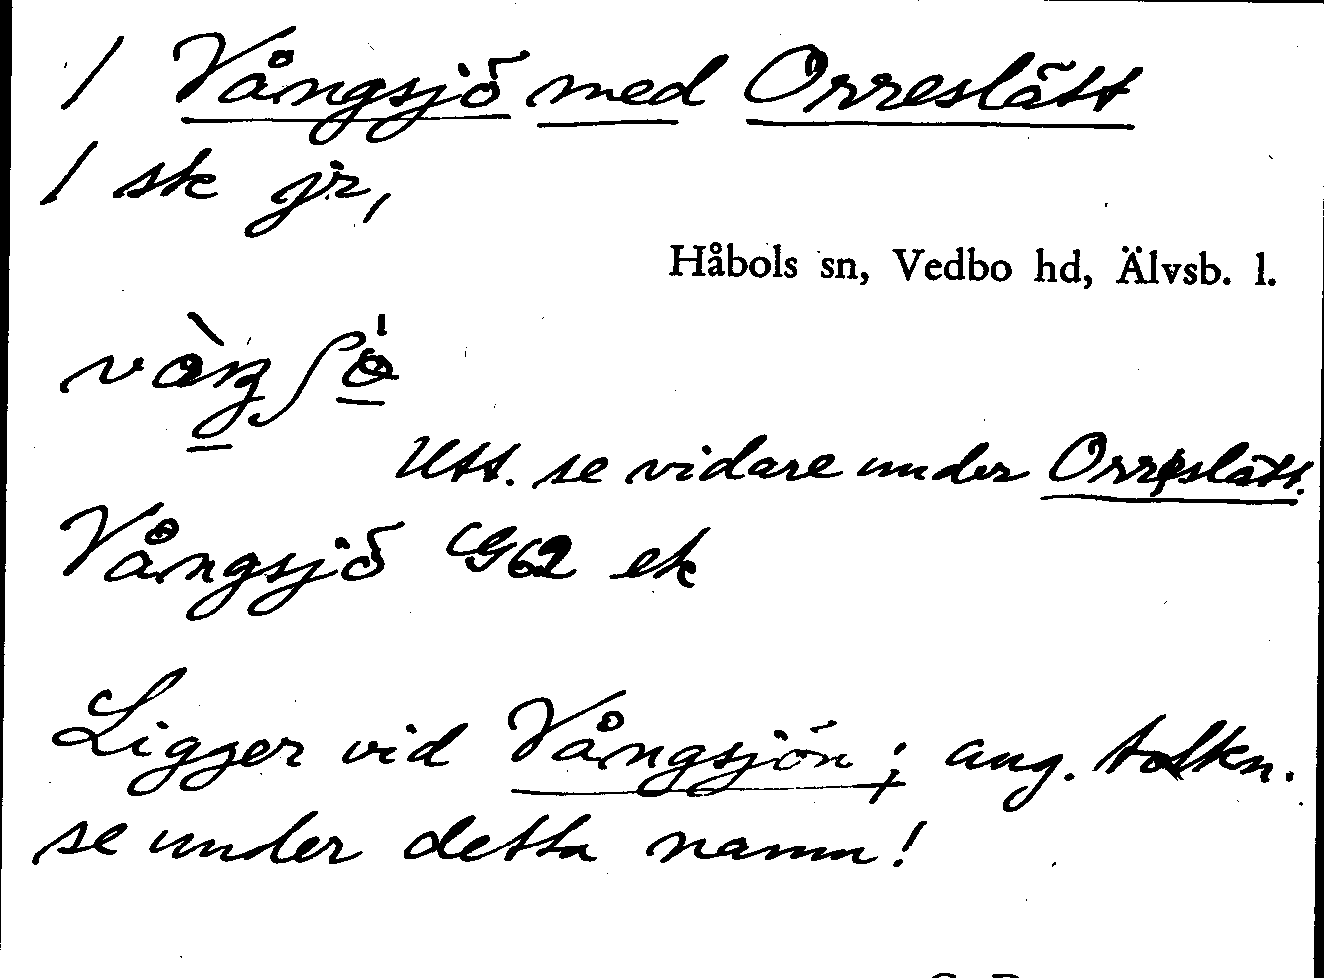 / Vångsjö med Orreslätt
/ sk jr,
Håbols sn, Vedbo hd, Älvsb. l.
Utt. se vidare under Orreslätt.
Vångsjö G62 ek
Ligger vid Vångsjön; ang. tolkn.
se under detta namn!